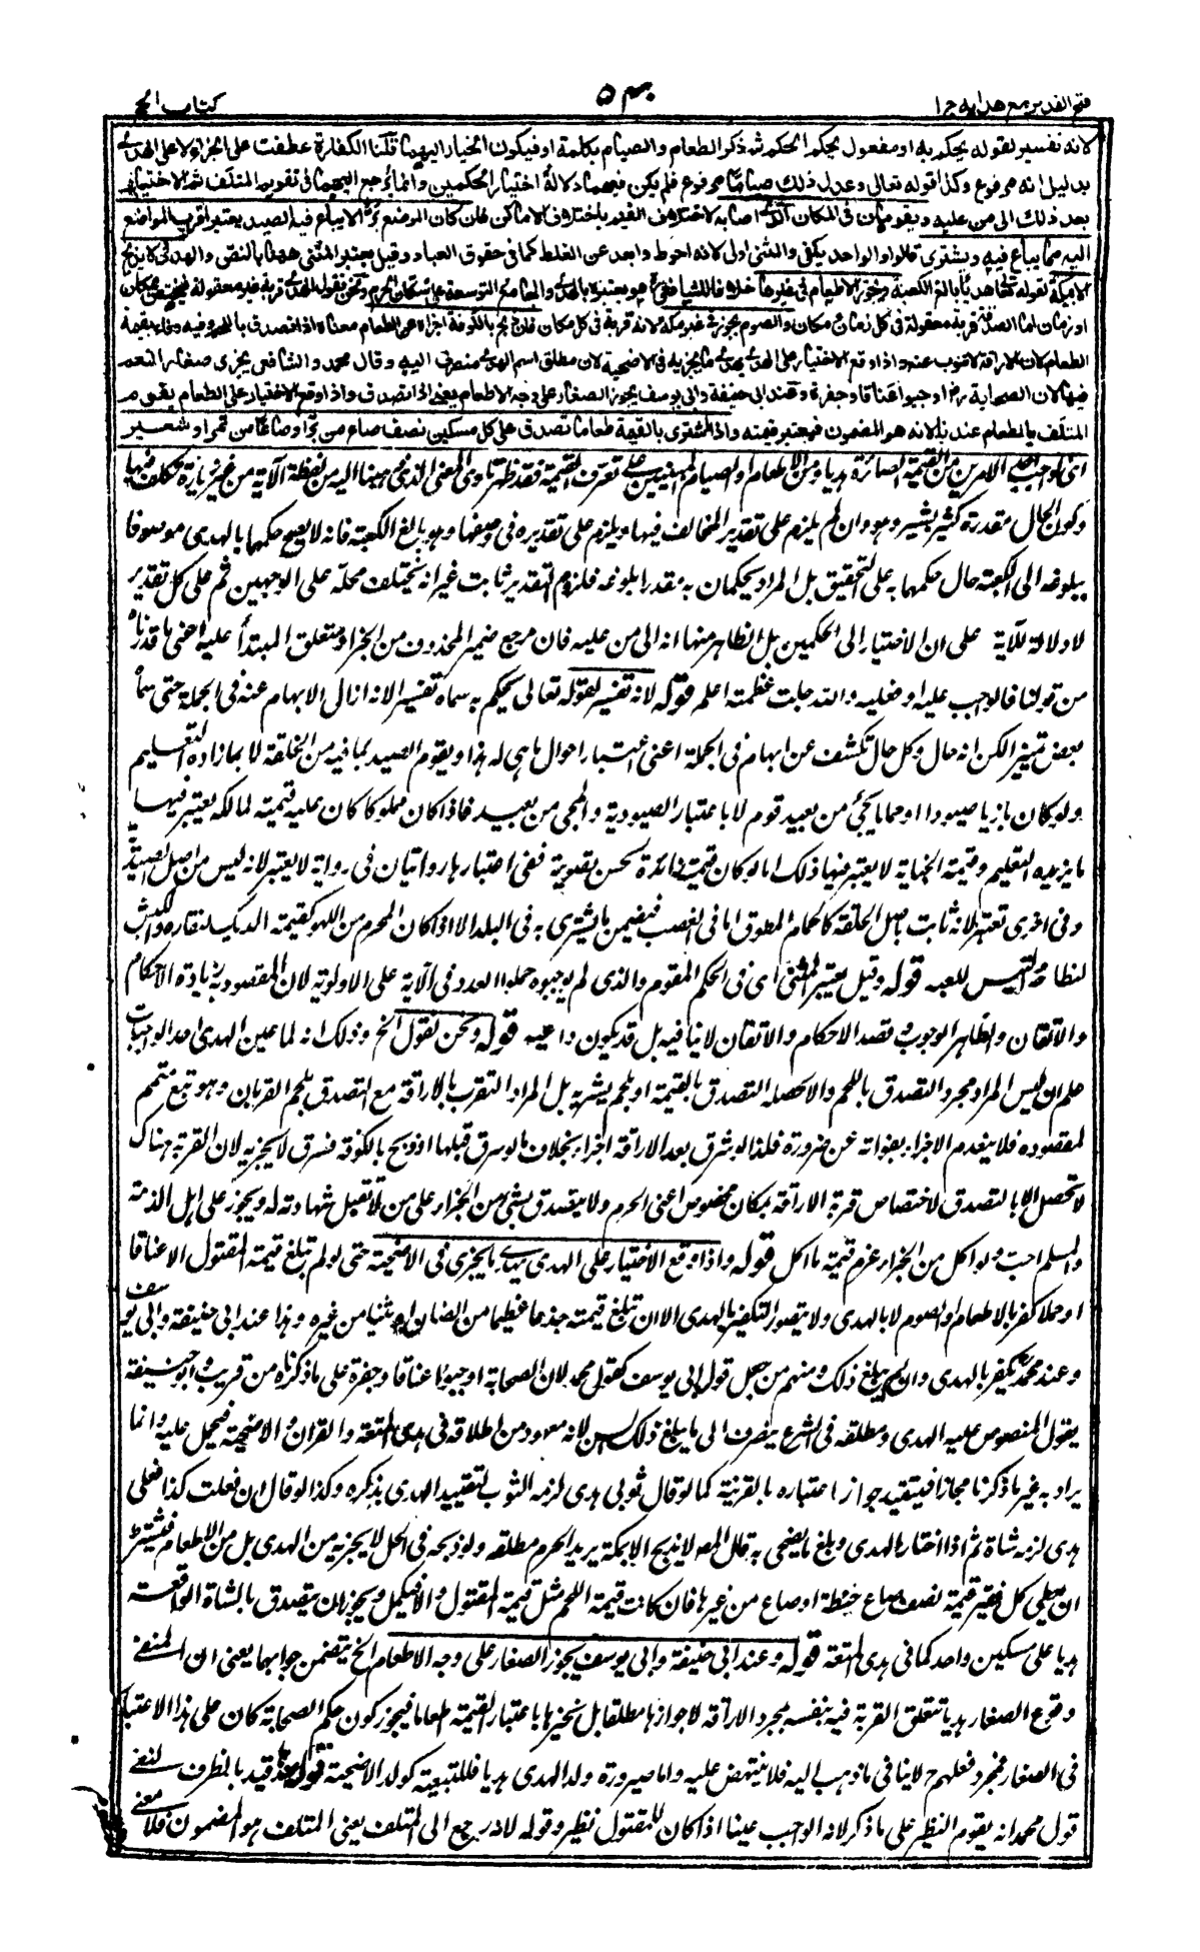 فتح القدير مع هدايه ج ١
٥٣٤
كتاب الحج
لانه تفسير لقوله يحكم به او مفعول لحكم الحكم ثم ذكر الطعام والصيام بكلمة او فيكون الخيار اليهما قلنا الكفارة عطفت على الجزاء لا على الهدى
بدليل انه مرفوع وكذا قوله تعالى وعدل ذلك صياما مرفوع فلم يكن فيهما دلالة اختيار الحكمين وانما يرجع اليهما فى تقويم المتلف ثم الاختيار
بعد ذلك الى من عليه ويقومان فى المكان الذى اصابه لاختلاف القيم باختلاف الاماكن فان كان الموضع برا لا يباع فيه الصيد يعتبر اقرب المواضع
اليه مما يباع فيه ويشترى قالوا والواحد يكفى والمثنى اولى لانه احوط وابعد عن الغلط كما فى حقوق العباد وقيل يعتبر المثنى ههنا بالنص والهدى لا يذبح
الا بمكة لقوله تعالى هديا بالغ الكعبة ويجوز الاطعام فى غيرها خلافا للشافعى هو يعتبره بالهدى والجامع التوسعة على سكان الحرم ونحن نقول الهدى قربة غير معقولة فيختص بمكان
او زمان اما الصدقة قربة معقولة فى كل زمان ومكان والصوم يجوز فى غير مكة لانه قربة فى كل مكان فان ذبح بالكوفة اجزاه عن الطعام معناه اذا تصدق باللحم وفيه وفاء بقيمة
الطعام لان الاراقة لا تنوب عنه واذا وقع الاختيار على الهدى يهدى ما يجزيه فى الاضحية لان مطلق اسم الهدى منصرف اليه وقال محمد والشافعى يجزى صغار النعم
فيها لان الصحابة رض اوجبوا عناقا وجفرة وعند ابى حنيفة وابى يوسف يجوز الصغار على وجه الاطعام يعنى اذا تصدق واذا وقع الاختيار على الطعام يقوم
المتلف بالطعام عندنا لانه هو المضمون فيعتبر قيمته واذا اشترى بالقيمة طعاما تصدق على كل مسكين نصف صاع من بر او صاعا من تمر او شعير
وكون الحال مقدرة كثير شيير وهو وان لم يلزم على تقدير المخالف فيها ويلزم على تقديره فى وصفها وهو بالغ الكعبة فانه لا يصح حكمها بالهدى موصوفا
ببلوغه الى الكعبة حال حكمها به على التحقيق بل المراد يحكمان به مقدرا بلوغه فلزوم التقدير ثابت غير انه يختلف محله على الوجهين ثم على كل تقدير
لا دلالة للآية على ان الاختيار الى الحكمين بل الظاهر منها انه الى من عليه فان مرجع ضمير المحذوف من الجزاء ومتعلق المبتدأ عليه اعنى ما قدرناه
من قولنا فالواجب عليه او فعليه والله جلت عظمته اعلم قوله لانه تفسير لقوله تعالى يحكم به سماه تفسيرا لانه ازال الابهام عنه فى الجملة حتى سماه
بعض تمييزا لكن انه حال وكل حال تكشف عن ابهام فى الجملة اعنى اعتبار احوال ما هى له هذا ويقوم الصيد بما فيه من الخلقة لا بما زاده التعليم
ولو كان بازيا صيودا او حماما يجئ من بعيد قوم لا باعتبار الصيودية والمجئ من بعيد فاذا كان مملوكا كان عليه قيمته لمالكه يعتبر فيها
ما يزيده التعليم وقيمته للجناية لا يعتبر فيها ذلك اما لو كان قيمته زائدة لحسن تصويته ففى اعتبارها روايتان فى رواية لا يعتبر لانه ليس من اصل الصيدية
وفى اخرى تعتبر لانه ثابت باصل الخلقة كالحمام المطوق اما فى الغصب فيضمن بما يشترى به فى البلد الا اذا كان المحرم من اللهو كقيمة الديك لنقاره والكبش
لنطاحه والتيس للعبه قوله وقيل يعتبر المثنى اى فى الحكم المقوم والذى لم يوجبوه حملوا العدد فى الآية على الاولوية لان المقصود به زيادة الاحكام
والاتقان والظاهر الوجوب وقصد الاحكام والاتقان لا ينافيه بل قد يكون داعيه قوله ونحن نقول الخ وذلك انه لما عين الهدى احد الواجبات
علم ان ليس المراد مجرد التصدق باللحم والا لحصله التصدق بالقيمة او بلحم يشتريه بل المراد التقرب بالاراقة مع التصدق بلحم القربان وهو تبع متمم
لمقصوده فلا ينعدم الاجزاء بفواته عن ضرورة فلذا لو سرق بعد الاراقة اجزاه بخلاف ما لو سرق قبلها او ذبح بالكوفة فسرق لا يجزيه لان القربة هناك
لا تحصل الا بالتصدق لاختصاص قربة الاراقة بمكان مخصوص اعنى الحرم ولا يتصدق بشئ من الجزاء على من لا تقبل شهادته له ويجوز على اهل الذمة
والمسلم احب ولو اكل من الجزاء غرم قيمة ما اكل قوله واذا وقع الاختيار على الهدى يهدى ما يجزى فى الاضحية حتى لو لم تبلغ قيمة المقتول الا عناقا
او حملا كفر بالاطعام او الصوم لا بالهدى ولا يتصور التكفير بالهدى الا ان تبلغ قيمته جذعا عظيما من الضان او ثنيا من غيره وهذا عند ابى حنيفة وابى يوسف
وعند محمد يكفر بالهدى وان لم يبلغ ذلك ومنهم من جعل قول ابى يوسف كقول محمد لان الصحابة اوجبوا عناقا وجفرة على ما ذكرناه من قريب وابو حنيفة
يقول المنصوص عليه الهدى ومطلقه فى الشرع ينصرف الى ما يبلغ ذلك السن لانه معهود من اطلاقه فى هدى المتعة والقران والاضحية فيحمل عليه وانما
يراد به غير ما ذكرنا مجازا فيتقيد جواز اعتباره بالقرينة كما لو قال ثوبى هدى لزمه الثوب لتقييد الهدى بذكره وكذا لو قال ان فعلت كذا فعلى
هدى لزمه شاة ثم اذا اختار الهدى وبلغ ما يضحى به قال المص لا يذبح الا بمكة يريد الحرم مطلقه ولو ذبحه فى الحل لا يجزيه من الهدى بل من الاطعام فيشترط
ان يعطى كل فقير قيمة نصف صاع حنطة او صاع من غيرها فان كانت قيمة اللحم مثل قيمة المقتول والا فيكمل ويجوز ان يتصدق بالشاة الواقعة
هديا على مسكين واحد كما فى هدى المتعة قوله وعند ابى حنيفة وابى يوسف يجوز الصغار على وجه الاطعام الخ يتضمن جوابهما يعنى ان المنفى
وقوع الصغار هديا تتعلق القربة فيه بنفسه بمجرد الاراقة لا جوازها مطلقا بل نجيزها باعتبار القيمة اطعاما فيجوز كون حكم الصحابة كان على هذا الاعتبار
فى الصغار فمجرد فعلهم لا ينافى ما ذهب اليه فلا ينتهض عليه واما صيرورة ولد الهدى هديا فللتبعية كولد الاضحية قوله عندنا قيد بالظرف لنفى
قول محمد انه يقوم النظير على ما ذكر لانه الواجب عينا اذا كان للمقتول نظير وقوله لانه رجع الى المتلف يعنى المتلف هو المضمون فلا معنى